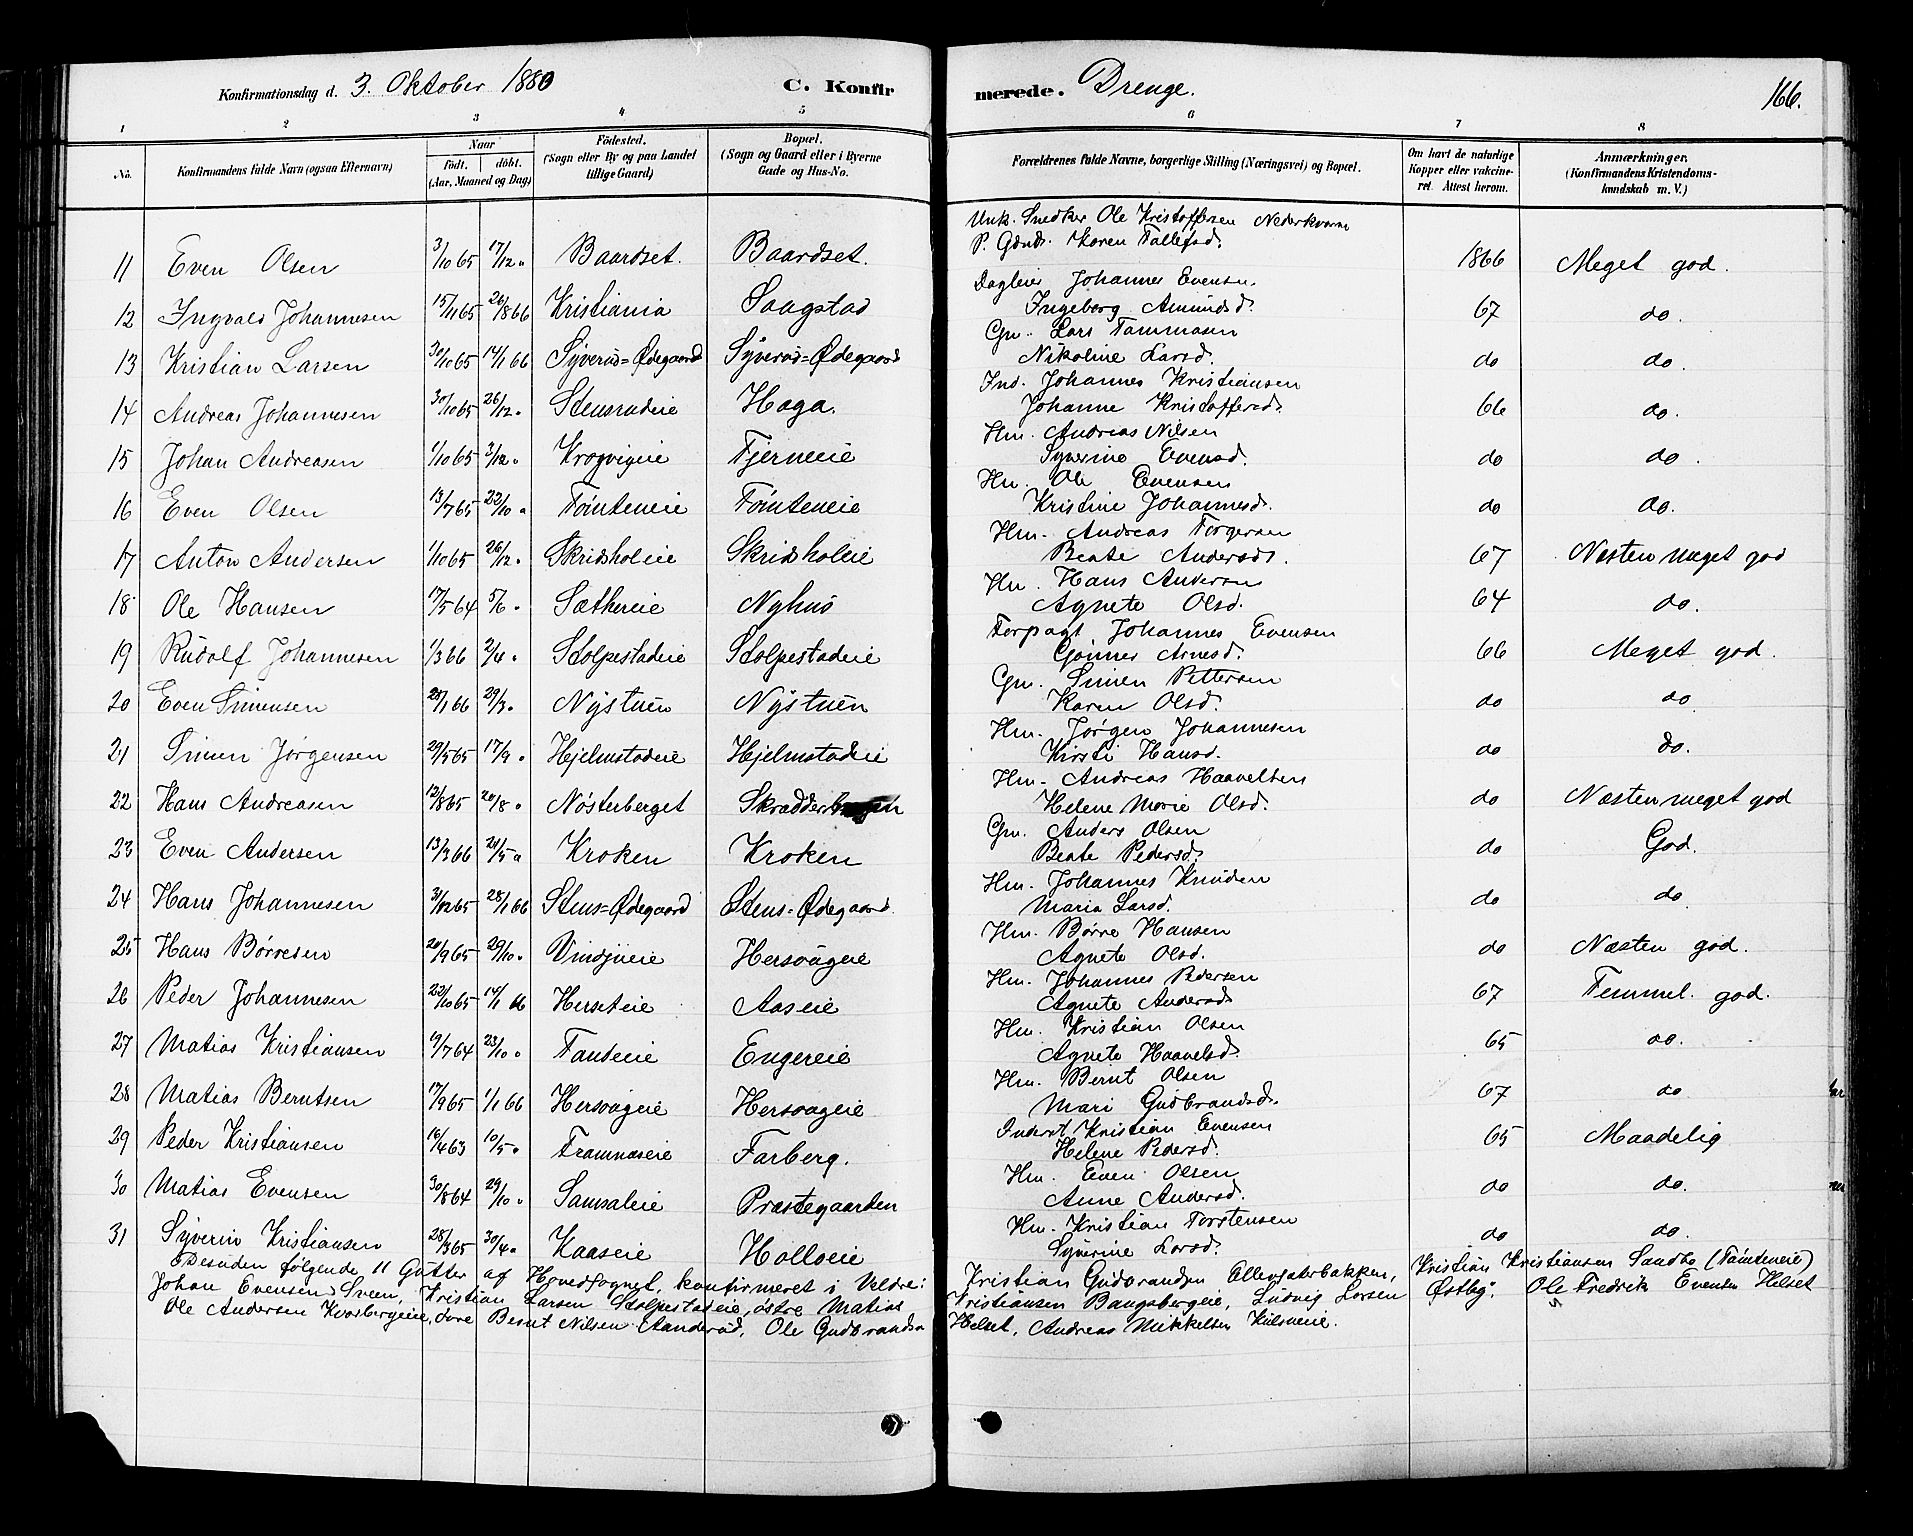 Konfirmationsdag d. 3. Oktober 1880 C. Konfirmerede. Drenge. 166.
1 2 3 4 5 6 7 8
No. Konfirmandens fulde Navn (ogsaa Efternavn) Naar født. døbt. (Aar, Maaned og Dag) Fødested. (Sogn eller By og paa Landet tillige Gaard) Bopæl. (Sogn og Gaard eller i Byerne Gade og Hus-No. Forældrenes fulde Navne, borgerlige Stilling (Næringsvei) og Bopæl. Om havt de naturlige Kopper eller vakcineret. Attest herom. Anmærkninger. (Konfirmandens Kristendomskundskab m. V.)
Unk. Snedker Ole Kristoffersen Nederkværn
11 Even Olsen 3/10 65 17/12 " Baardset. Baardset. P. Gdmds. Karen Tollefsd. 1866 Meget god.
Dagleier Johannes Evensen
12 Ingvald Johannesen 15/11 65 26/8 66 Kristiania Saugstad Ingeborg Amundsd. 67 do.
Gm. Lars Tommasen
13 Kristian Larsen 30/10 65 14/1 66 Syverud=Ødegaard Syverud=Ødegaard Nikoline Larsd. do do.
Ind. Johannes Kristiansen
14 Andreas Johannesen 30/10 65 26/12 " Stensrudeie Haga. Johanne Kristoffersd. 66 do.
Hm. Andreas Nilsen
15 Johan Andreasen 1/10 65 3/12 " Krogvigeie Tjerneie Syverine Evensd. do do.
Hm. Ole Evensen
16 Even Olsen 13/7 65 22/10 " Tømteneie Tømteneie Kristine Johannesd. do do.
Hm. Andreas Torgersen
17 Anton Andersen 1/10 65 26/12 " Skridsholeie Skridsholeie Beate Andersd. 67 Næsten meget god
Hm. Hans Andersen
18 Ole Hansen 17/5 64 5/6 " Sæthereie Nyhus Agnete Olsd. 64 do.
Forpagt. Johannes Evensen
19 Rudolf Johannesen 1/3 66 2/4 " Stolpestadeie Stolpestadeie Gønner Arnesd. 66 Meget god.
Gm. Simen Pettersen
20 Even Simensen 28/1 66 29/3 " Nystuen Nystuen Karen Olsd. do do
Hm. Jørgen Johannesen
21 Simen Jørgensen 29/5 65 17/9 " Hjelmstadeie Hjelmstadeie Kirsti Hansd. do do.
Hm. Andreas Haavelsen
22 Hans Andreasen 12/8 65 20/8 " Nøsterberget Helene Marie Olsd. do Næsten meget god
Gm. Anders Olsen
23 Even Andersen 13/3 66 21/5 " Kroken Kroken Beate Pedersd. do God.
Hm. Johannes Knudsen
24 Hans Johannesen 31/12 65 28/1 66 Stens=Ødegaard Stens=Ødegaard Maria Larsd. do do.
Hm. Børre Hansen
25 Hans Børresen 20/9 65 29/10 " Hersougeie Agnete Olsd. do Næsten god.
Hm. Johannes Pedersen
26 Peder Johannesen 22/10 65 14/1 66 Herseteie Aaseie Agnete Andersd. 67 Temmel. god.
Hm. Kristian Olsen
27 Matias Kristiansen 19/7 64 23/10 " Tandeie Engereie Agnete Haavelsd. 65 do.
Hm. Bernt Olsen
28 Matias Berntsen 17/9 65 1/1 66 Hersougeie Hersougeie Mari Gudbrandsd. 67 do
Inderst Kristian Evensen
29 Peder Kristiansen 16/4 63 10/5 " Framnæseie Farberg. Helene Pedersd. 65 Maadelig
Hm. Even Olsen
30 Matias Evensen 30/8 64 29/10 " Samsaleie Præstegaarden Anne Andersd. do do.
Hm. Kristian Torstensen
31 Syverin Kristiansen 28/3 65 30/4 " Kaaseie Holloeie Syverine Larsd. do do.
Desuden følgende 11 Gutter af Hovedsognet, konfirmeret i Veldre: Kristian Gudbrandsen Ellevsæterbakken, Kristian Kristiansen Sandbo (Tømteneie)
Johan Evensen Sveen, Kristian Larsen Stolpestadeie, østre Matias Kristiansen Bangsbergeie, Ludvig Larsen Østby. Ole Fredrik Evensen Helset
Ole Andersen Kvarbergeie, Bernt Nilsen Aanderud, Ole Gudbrandsen Helset, Andreas Mikkelsen